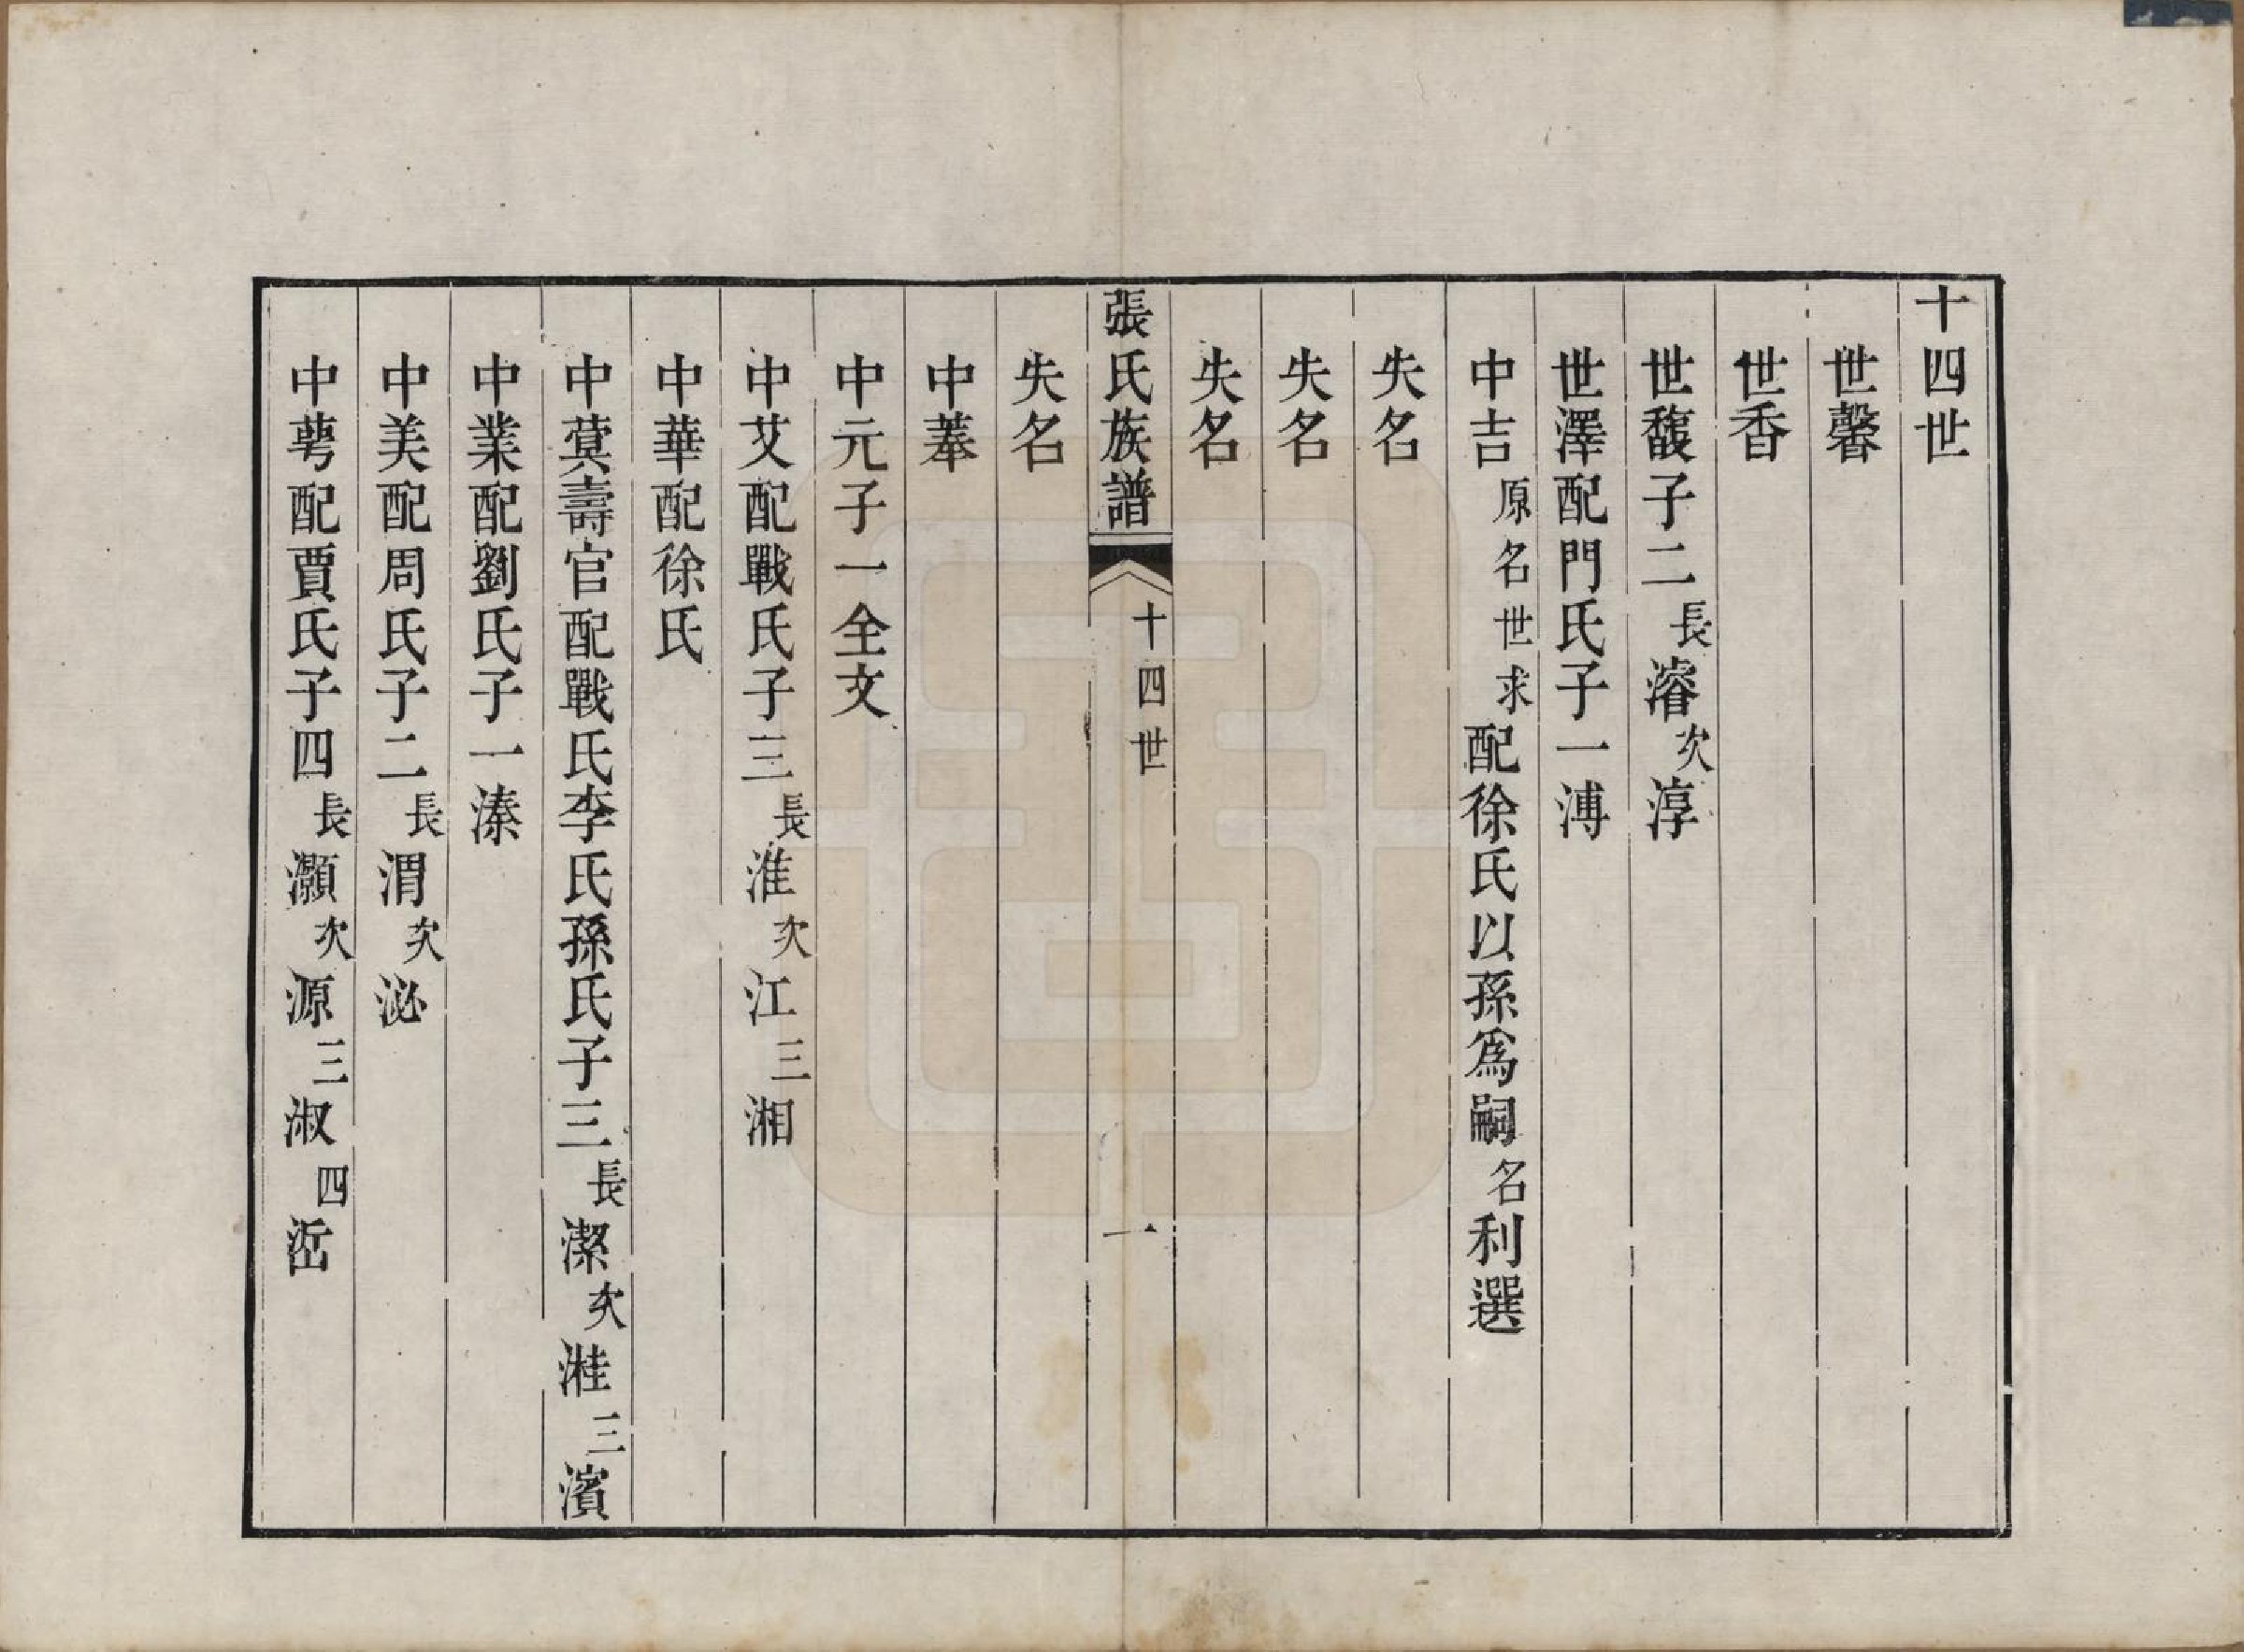 十四世
世馨
世香
世馥子二長濬次淳
世澤配門氏子一溥
中吉原名世求配徐氏以孫爲嗣名利選
失名
失名
失名
張氏族譜 十四世 一
失名
中菶
中元子一全文
中艾配戰氏子三長淮次江三湘
中華配徐氏
中蓂壽官配戰氏李氏孫氏子三長潔次溎三濱
中業配劉氏子一溱
中美配周氏子二長渭次泌
中萼配賈氏子四長灝次源三淑四澁